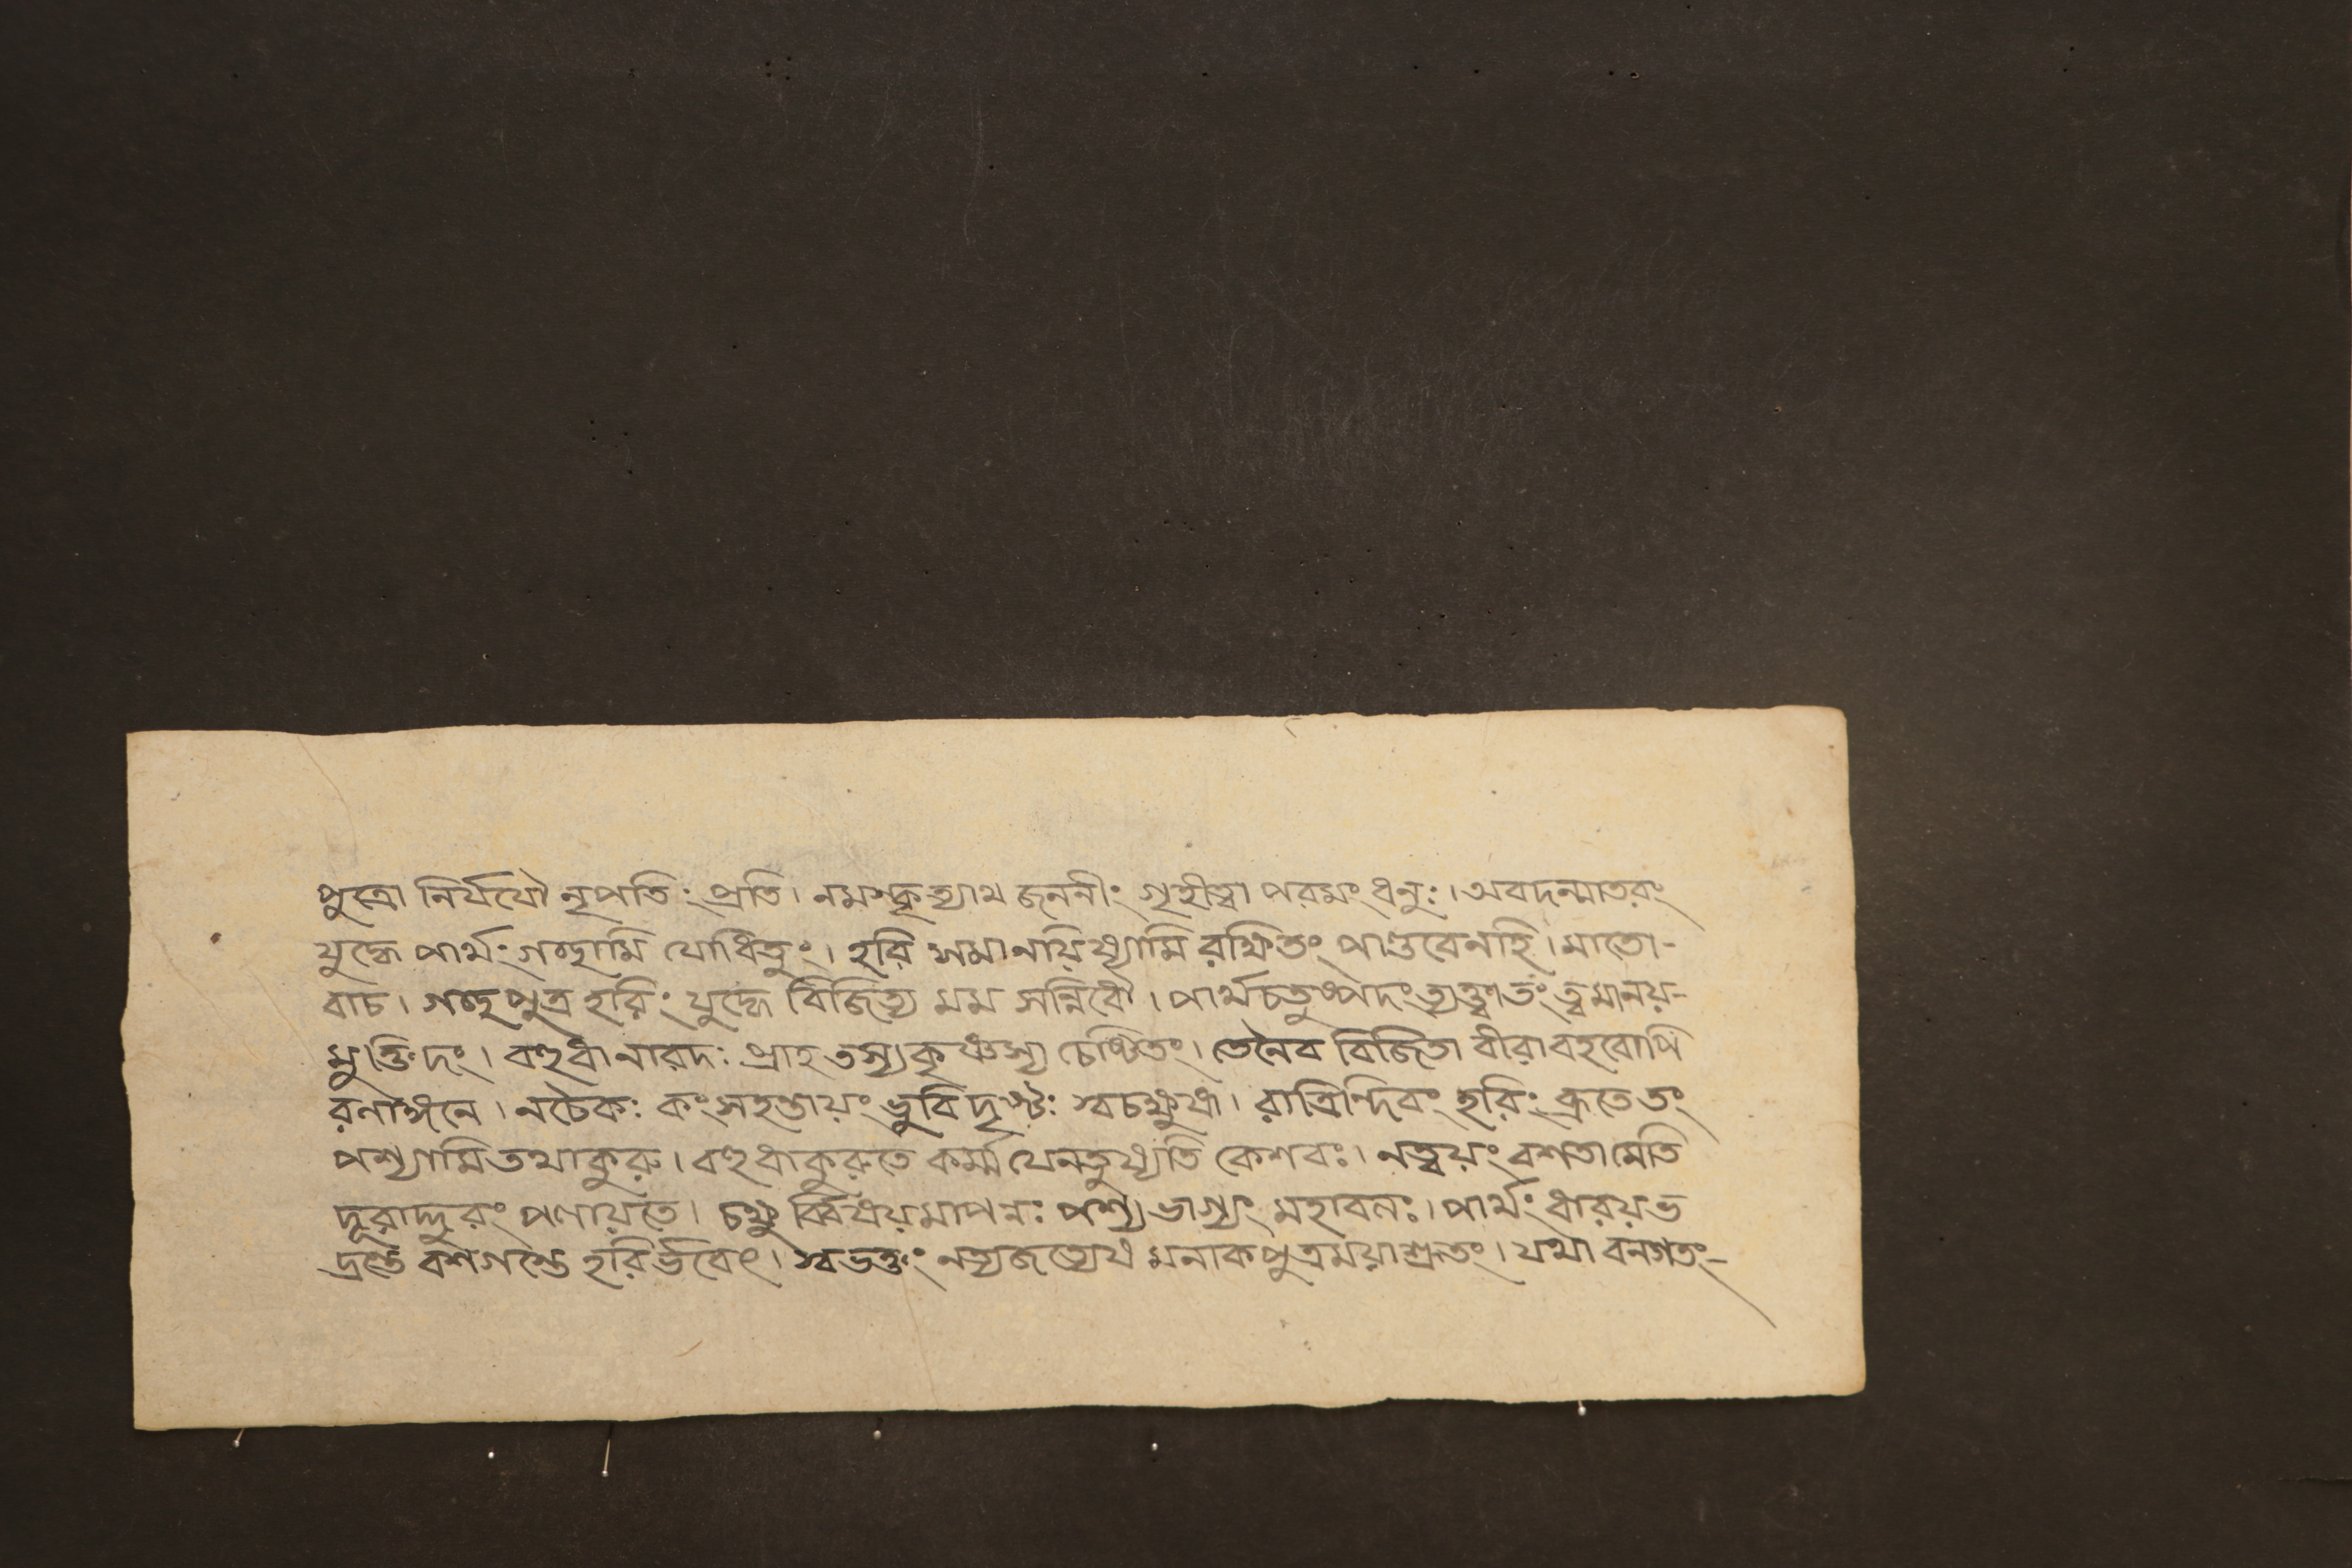 পুত্রো নির্যযৌ নৃপতিং প্রতি। নমস্কৃত্যাথ জননীং গৃহীত্বা পরমং ধনুঃ। অবদন্মাতরং
যুদ্ধে পার্থং গচ্ছামি যোধিতুং। হরি সমানয়িষ্যামি রক্ষিতং পাণ্ডবেনহি। মাতো-
বাচ। গচ্ছ পুত্র হরিং যুদ্ধে বিজিত্য মম সন্নিধৌ। পার্থচতুষ্পদং ত্যক্ত্বা তং ত্বমানয়-
মুক্তিদং। বহুধা নারদঃ প্রাহ তস্য কৃষ্ণস্য চেষ্টিতং। তেনৈব বিজিতা বীরা বহবোপি
রনাঙ্গনে। নচৈকঃ কংসহন্তায়ং ভুবি দৃষ্টঃ স্বচক্ষুষা। রাত্রিন্দিবং হরিং ব্রূতে তং
পশ্যামি তথা কুরু। বহুধা কুরুতে কর্ম্ম যেন তুষ্যতি কেশবঃ। নত্বয়ং বশতামেতি
দূরাদ্দুরং পলায়তে। চক্ষু র্বিষয়মাপন্নঃ পশ্য ভাগ্যং মহাবলঃ। পার্থং ধারয় ভ
দ্রন্তে বশগস্তে হরির্ভবেৎ। স্বভক্তং নত্যজত্যেষ মনাক পুত্র ময়া শ্রুতং। যথা বনগতং-